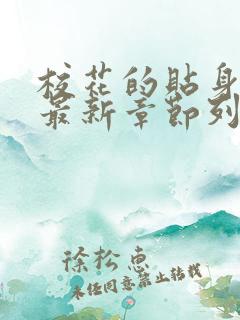 校花的貼身
最新章節列
徐松惠
未经同意禁止转载